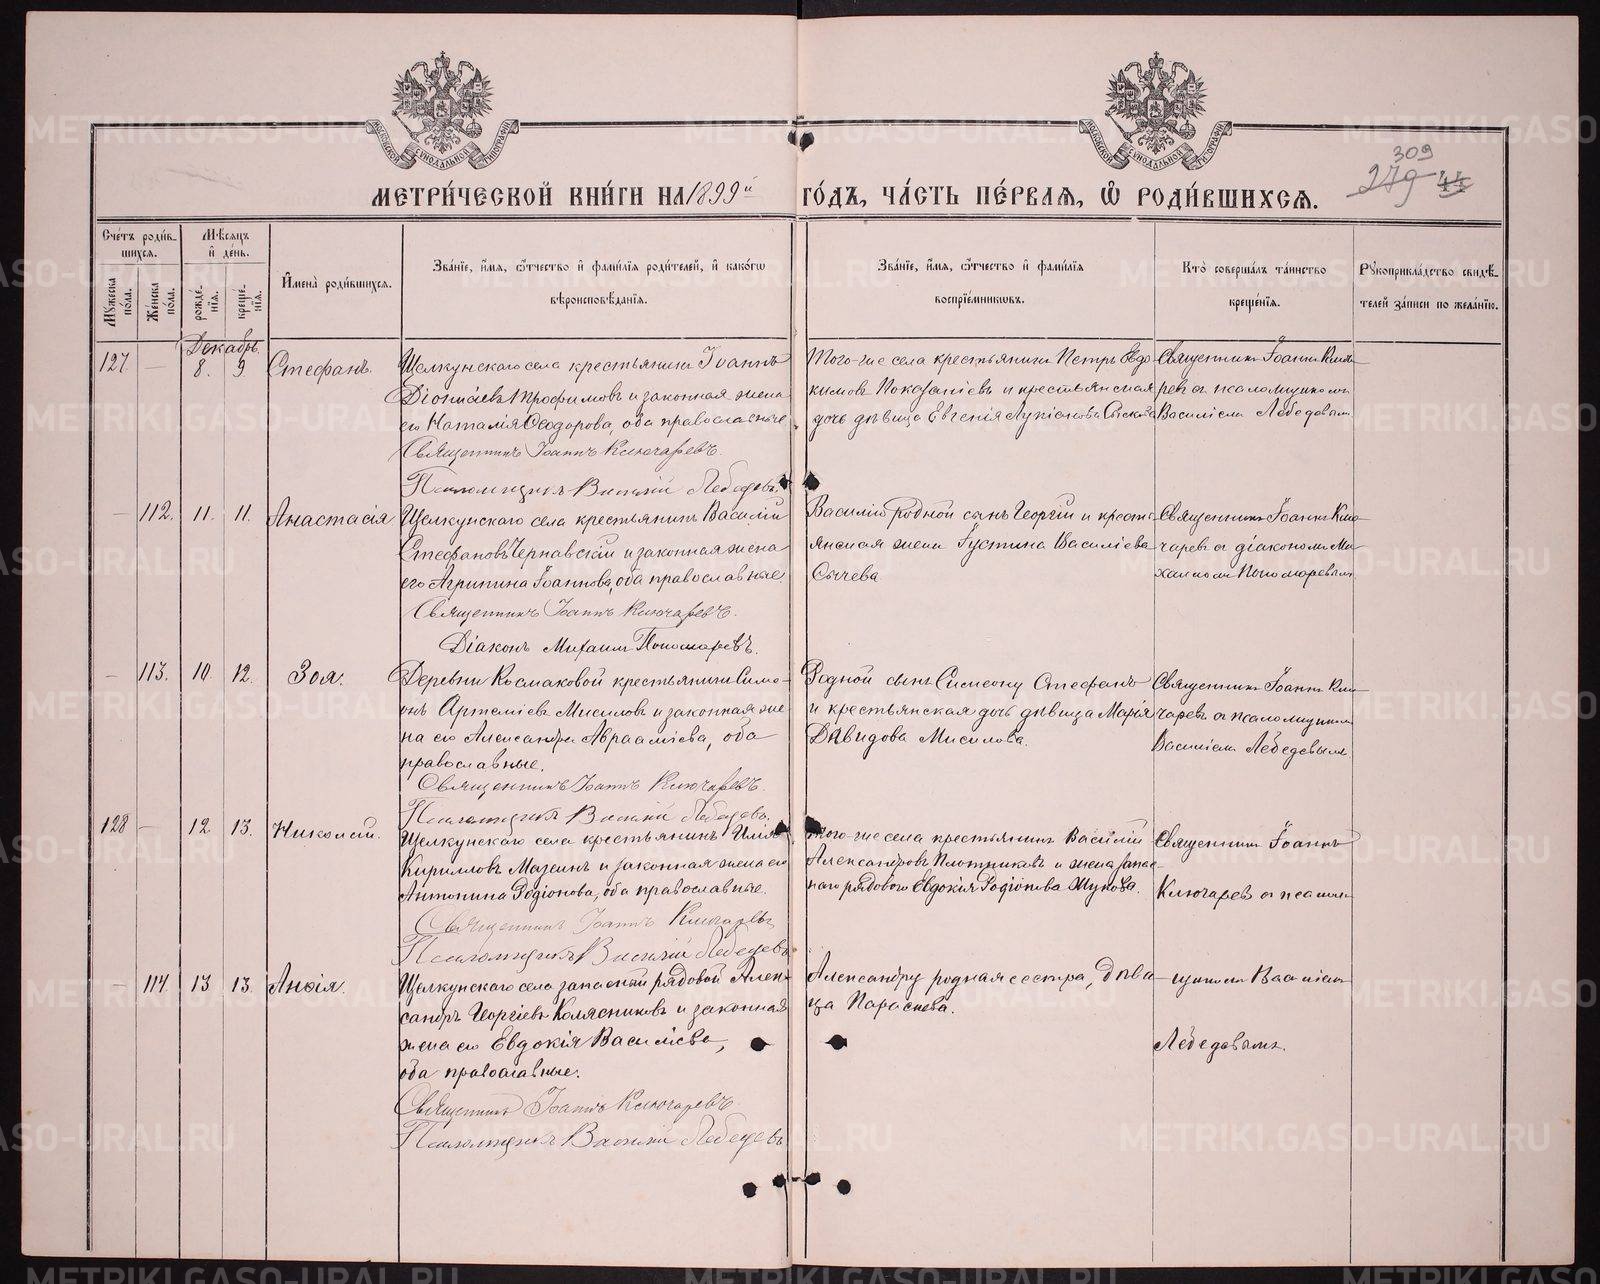 309
279 44
МЕТРИЧЕСКОЙ КНИГИ НА 1899й ГОДЪ, ЧАСТЬ ПЕРВАЯ, Ѽ РОДИВШИХСЯ.
Счетъ родившихся.
Мужеска пола.
Женска пола.
Мѣсяцъ и день.
рожденія.
крещенія.
Имена родившихся.
Званіе, имя, отчество и фамилія родителей, и какогѡ вѣроисповѣданія.
Званіе, имя, отчество и фамилія воспріемниковъ.
Кто совершалъ таинство крещенія.
Рукоприкладство свидѣтелей записи по желанію.
Декабрь.
127. — 8. 9 Стефанъ.
Щелкунскаго села крестьянинъ Іоаннъ
Діонисіевъ Трофимовъ и законная жена
его Наталія Ѳеодорова, оба православные
Священникъ Іоаннъ Ключаревъ.
Псаломщикъ Василій Лебедевъ.
Того-же села крестьянинъ Петръ Евдо
кимовъ и крестьянская
дочь дѣвица Евгенія Лукіанова
Священникъ Іоаннъ Клю
чаревъ съ псаломщикомъ
Василіемъ Лебедевымъ
— 112. 11. 11. Анастасія
Щелкунскаго села крестьянинъ Василій
Стефановъ Чернавскій и законная жена
его Агрипина Іоаннова, оба православные
Священникъ Іоаннъ Ключаревъ.
Діаконъ Михаилъ Пономаревъ.
Василію родной сынъ Георгій и кресть
янская жена Іустина Василіева
Сычева
Священникъ Іоаннъ Клю
чаревъ съ діакономъ Ми
хаиломъ Пономаревымъ
— 113. 10. 12. Зоя.
Деревни Космаковой крестьянинъ Симе
онъ Артеміевъ Мисиловъ и законная же
на его Александра Авраамiева, оба
православные.
Священникъ Іоаннъ Ключаревъ.
Псаломщикъ Василій Лебедевъ.
Родной сынъ Симеону Стефанъ
и крестьянская дочь дѣвица Марія
Давидова Мисилова.
Священникъ Іоаннъ Клю
чаревъ съ псаломщикомъ
Василіемъ Лебедевымъ.
128 — 12. 13. Николай.
Щелкунскаго села крестьянинъ Илія
Кирилловъ Мазеинъ и законная жена его
Антонина Родіонова, оба православные.
Священникъ Іоаннъ Ключаревъ
Псаломщикъ Василій Лебедевъ
Того-же села крестьянинъ Василій
Александровъ Плотниковъ и жена запас
наго рядового Евдокія Родіонова Жукова.
Священникъ Іоаннъ
Ключаревъ съ псалом
— 114. 13 13. Анѳія.
Щелкунскаго села запасный рядовой Алек
сандръ Георгіевъ Колясниковъ и законная
жена его Евдокія Василіева,
оба православные.
Священникъ Іоаннъ Ключаревъ.
Псаломщикъ Василій Лебедевъ
Александру родная сестра, дѣви
ца Параскева.
щикомъ Василіемъ
Лебедевымъ.